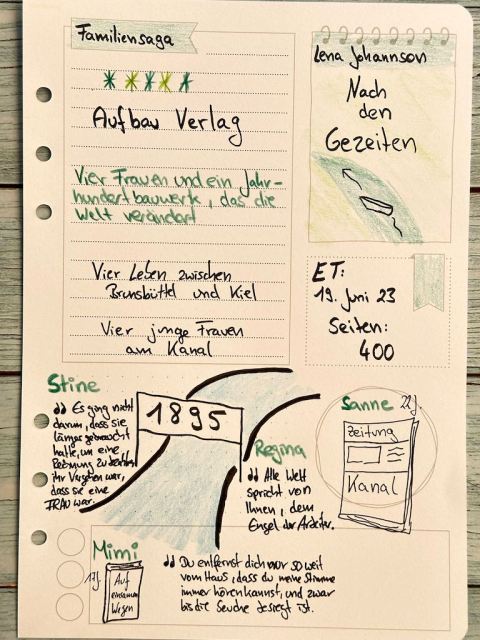 Familiensaga
Aufbau Verlag
Vier Frauen und ein Jahr-
hundertbauwerk, das die
Welt verändert
Vier Leben zwischen
Brunsbüttel und Kiel
Vier junge Frauen
am Kanal
Lena Johannson
Nach
den
Gezeiten
ET:
19. Juni 23
Seiten:
400
Stine
Es ging nicht
darum, dass sie
länger gebraucht
hatte, um eine
Rechnung zu
ihr Vergehen war,
dass sie eine
FRAU war.
1895
Regina
Alle Welt
spricht von
Ihnen, dem
Engel der Arbeiter.
Sanne 22J.
Zeitung
Kanal
Mimi
17J.
Auf
einsamen
Wegen
Du entfernst dich nur so weit
vom Haus, dass du meine Stimme
immer hören kannst, und zwar
bis die Seuche besiegt ist.